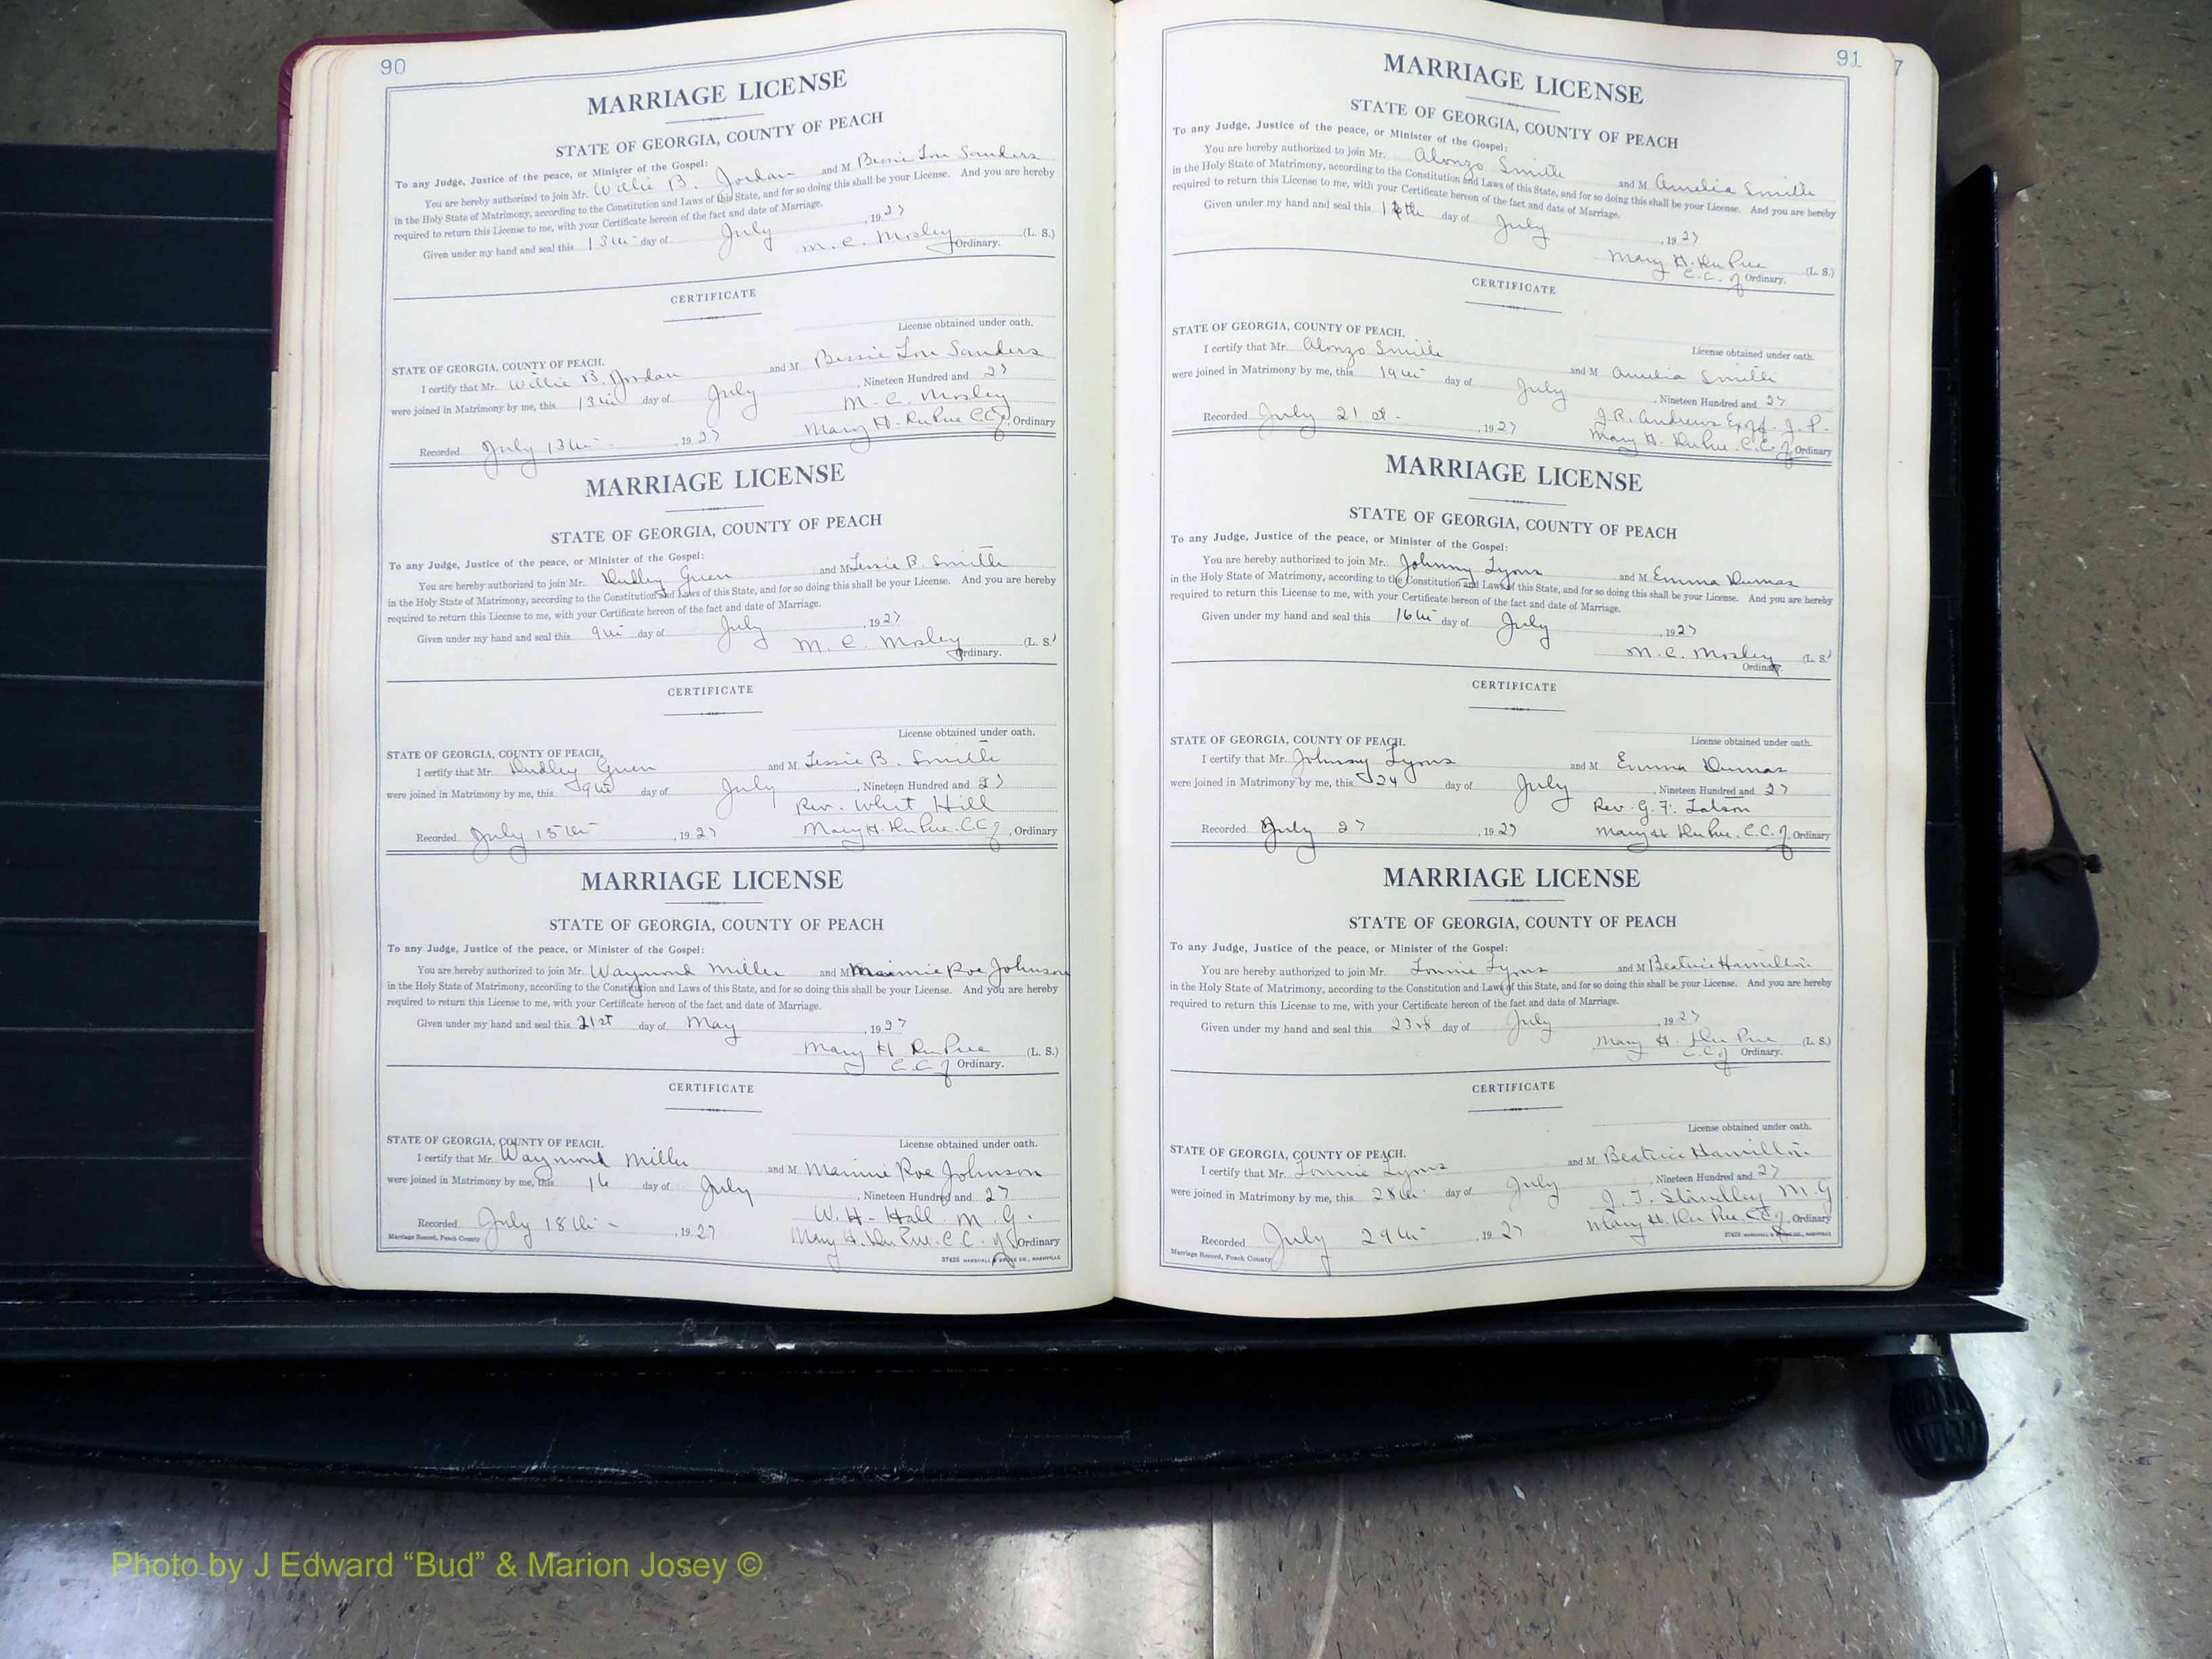 90
MARRIAGE LICENSE
STATE OF GEORGIA, COUNTY OF PEACH
To any Judge, Justice of the peace, or Minister of the Gospel:
You are hereby authorized to join Mr. Willie B. Jordan and M Bessie Lou Sanders
in the Holy State of Matrimony, according to the Constitution and Laws of this State, and for so doing this shall be your License. And you are hereby
required to return this License to me, with your Certificate hereon of the fact and date of Marriage.
Given under my hand and seal this 13th day of July, 1927
M. C. Mosley (L. S.)
Ordinary.
CERTIFICATE
License obtained under oath.
STATE OF GEORGIA, COUNTY OF PEACH.
I certify that Mr. Willie B. Jordan and M Bessie Lou Sanders
were joined in Matrimony by me, this 13th day of July, Nineteen Hundred and 27
M. C. Mosley
Recorded July 13th, 1927 Mary H. DuPree C.C.O., Ordinary
MARRIAGE LICENSE
STATE OF GEORGIA, COUNTY OF PEACH
To any Judge, Justice of the peace, or Minister of the Gospel:
You are hereby authorized to join Mr. Dudley Green and M Tessie B. Smith
in the Holy State of Matrimony, according to the Constitution and Laws of this State, and for so doing this shall be your License. And you are hereby
required to return this License to me, with your Certificate hereon of the fact and date of Marriage.
Given under my hand and seal this 9th day of July, 1927
M. C. Mosley (L. S.)
Ordinary.
CERTIFICATE
License obtained under oath.
STATE OF GEORGIA, COUNTY OF PEACH.
I certify that Mr. Dudley Green and M Tessie B. Smith
were joined in Matrimony by me, this 9th day of July, Nineteen Hundred and 27
Rev. Whit Hill
Recorded July 15th, 1927 Mary H. DuPree C.C.O., Ordinary
MARRIAGE LICENSE
STATE OF GEORGIA, COUNTY OF PEACH
To any Judge, Justice of the peace, or Minister of the Gospel:
You are hereby authorized to join Mr. Waymond Miller and M Mainnie Roe Johnson
in the Holy State of Matrimony, according to the Constitution and Laws of this State, and for so doing this shall be your License. And you are hereby
required to return this License to me, with your Certificate hereon of the fact and date of Marriage.
Given under my hand and seal this 21st day of May, 1927
Mary H. DuPree (L. S.)
C.C.O. Ordinary.
CERTIFICATE
License obtained under oath.
STATE OF GEORGIA, COUNTY OF PEACH.
I certify that Mr. Waymond Miller and M Mainnie Roe Johnson
were joined in Matrimony by me, this 16 day of July, Nineteen Hundred and 27
W. H. Hall M. G.
Recorded July 18th, 1927 Mary H. DuPree C.C.O. Ordinary
Marriage Record, Peach County
37625 MARSHALL & BRUCE CO., NASHVILLE
91
7
MARRIAGE LICENSE
STATE OF GEORGIA, COUNTY OF PEACH
To any Judge, Justice of the peace, or Minister of the Gospel:
You are hereby authorized to join Mr. Alonzo Smith and M Amelia Smith
in the Holy State of Matrimony, according to the Constitution and Laws of this State, and for so doing this shall be your License. And you are hereby
required to return this License to me, with your Certificate hereon of the fact and date of Marriage.
Given under my hand and seal this day of July, 1927
Mary H. DuPree (L. S.)
C.C.O. Ordinary.
CERTIFICATE
License obtained under oath.
STATE OF GEORGIA, COUNTY OF PEACH.
I certify that Mr. Alonzo Smith and M Amelia Smith
were joined in Matrimony by me, this 19th day of July, Nineteen Hundred and 27
J. R. Andrews Ex Off. J. P.
Recorded July 21st, 1927 Mary H. DuPree C.C.O. Ordinary
MARRIAGE LICENSE
STATE OF GEORGIA, COUNTY OF PEACH
To any Judge, Justice of the peace, or Minister of the Gospel:
You are hereby authorized to join Mr. Johnny Lyons and M Emma Dumas
in the Holy State of Matrimony, according to the Constitution and Laws of this State, and for so doing this shall be your License. And you are hereby
required to return this License to me, with your Certificate hereon of the fact and date of Marriage.
Given under my hand and seal this 16th day of July, 1927
M. C. Mosley (L. S.)
Ordinary.
CERTIFICATE
License obtained under oath.
STATE OF GEORGIA, COUNTY OF PEACH.
I certify that Mr. Johnny Lyons and M Emma Dumas
were joined in Matrimony by me, this 24 day of July, Nineteen Hundred and 27
Rev. G. F.
Recorded July 27, 1927 Mary H. DuPree C.C.O. Ordinary
MARRIAGE LICENSE
STATE OF GEORGIA, COUNTY OF PEACH
To any Judge, Justice of the peace, or Minister of the Gospel:
You are hereby authorized to join Mr. Lonnie Lyons and M Beatrice Hamilton
in the Holy State of Matrimony, according to the Constitution and Laws of this State, and for so doing this shall be your License. And you are hereby
required to return this License to me, with your Certificate hereon of the fact and date of Marriage.
Given under my hand and seal this 23rd day of July, 1927
Mary H. DuPree (L. S.)
C.C.O. Ordinary.
CERTIFICATE
License obtained under oath.
STATE OF GEORGIA, COUNTY OF PEACH.
I certify that Mr. Lonnie Lyons and M Beatrice Hamilton
were joined in Matrimony by me, this 28th day of July, Nineteen Hundred and 27
J. T. Standley M. G.
Recorded July 29th, 1927 Mary H. DuPree C.C.O. Ordinary
Marriage Record, Peach County
37625 MARSHALL & BRUCE CO., NASHVILLE
Photo by J Edward “Bud” & Marion Josey ©